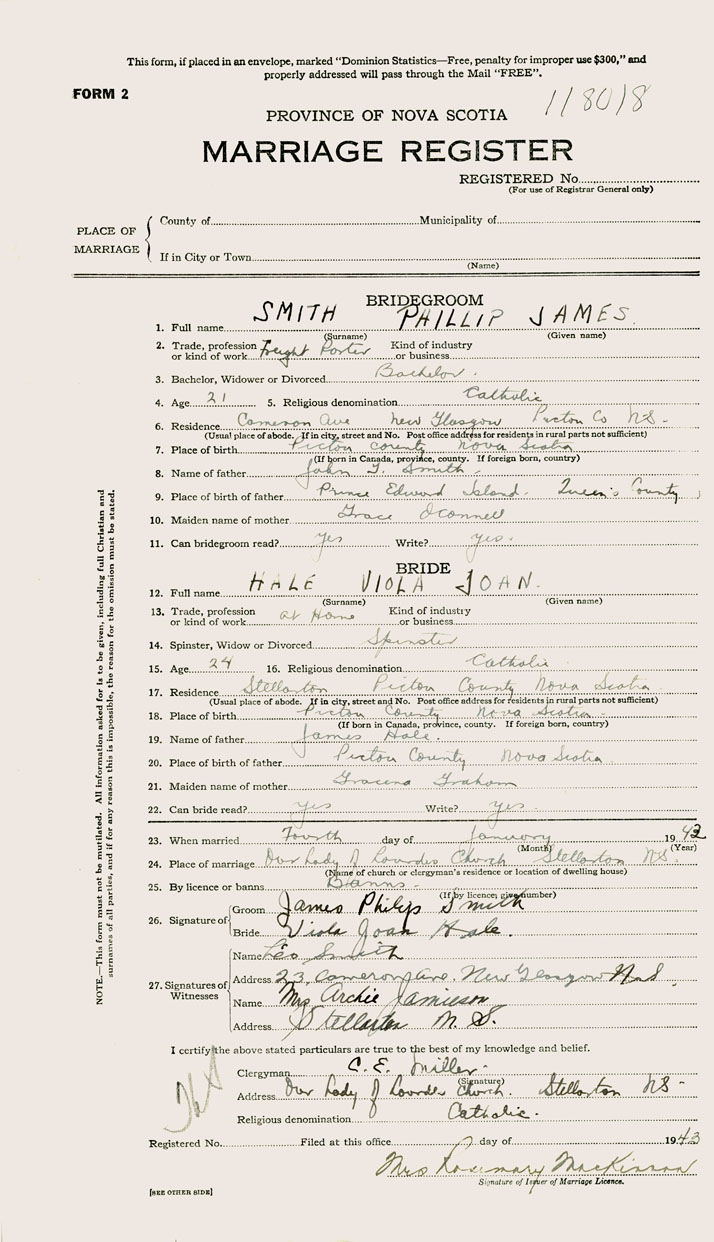 This form, if placed in an envelope, marked “Dominion Statistics—Free, penalty for improper use $300,” and
properly addressed will pass through the Mail “FREE”.
FORM 2
118018
PROVINCE OF NOVA SCOTIA
MARRIAGE REGISTER
REGISTERED No.
(For use of Registrar General only)
PLACE OF MARRIAGE
County of Municipality of
If in City or Town
(Name)
BRIDEGROOM
1. Full name SMITH PHILLIP JAMES
(Surname) (Given name)
2. Trade, profession or kind of work Freight Porter Kind of industry or business
3. Bachelor, Widower or Divorced Bachelor.
4. Age 21 5. Religious denomination Catholic
6. Residence Cameron Ave New Glasgow Picton Co NS-
(Usual place of abode. If in city, street and No. Post office address for residents in rural parts not sufficient)
7. Place of birth Picton County Nova Scotia
(If born in Canada, province, county. If foreign born, country)
8. Name of father John J. Smith.
9. Place of birth of father Prince Edward Island. Queen's County
10. Maiden name of mother Grace Oconnell
11. Can bridegroom read? yes Write? yes.
BRIDE
12. Full name HALE VIOLA JOAN.
(Surname) (Given name)
13. Trade, profession or kind of work at Home Kind of industry or business
14. Spinster, Widow or Divorced Spinster
15. Age 24 16. Religious denomination Catholic
17. Residence Stellarton Picton County Nova Scotia
(Usual place of abode. If in city, street and No. Post office address for residents in rural parts not sufficient)
18. Place of birth Picton County Nova Scotia.
(If born in Canada, province, county. If foreign born, country)
19. Name of father James Hale.
20. Place of birth of father Picton County Nova Scotia.
21. Maiden name of mother Gracena Graham
22. Can bride read? yes Write? yes.
23. When married Fourth day of January 1942
(Month) (Year)
24. Place of marriage Our Lady of Lourdes Church Stellarton NS.
(Name of church or clergyman's residence or location of dwelling house)
25. By licence or banns Banns-
(If by licence, give number)
26. Signature of
Groom James Philip Smith
Bride Viola Joan Hale.
27. Signatures of Witnesses
Name Leo Smith
Address 23, Cameron Ave, New Glasgow N.S
Name Mrs Archie Jamieson
Address Stellarton N. S.
I certify the above stated particulars are true to the best of my knowledge and belief.
Clergyman C. E. Miller-
(Signature)
Address Our Lady of Lourdes Church. Stellarton NS-
Religious denomination Catholic.
Registered No. Filed at this office day of 1943
Mrs Rosemary MacKinnon
Signature of Issuer of Marriage Licence.
[SEE OTHER SIDE]
NOTE.—This form must not be mutilated. All information asked for is to be given, including full Christian and
surnames of all parties, and if for any reason this is impossible, the reason for the omission must be stated.